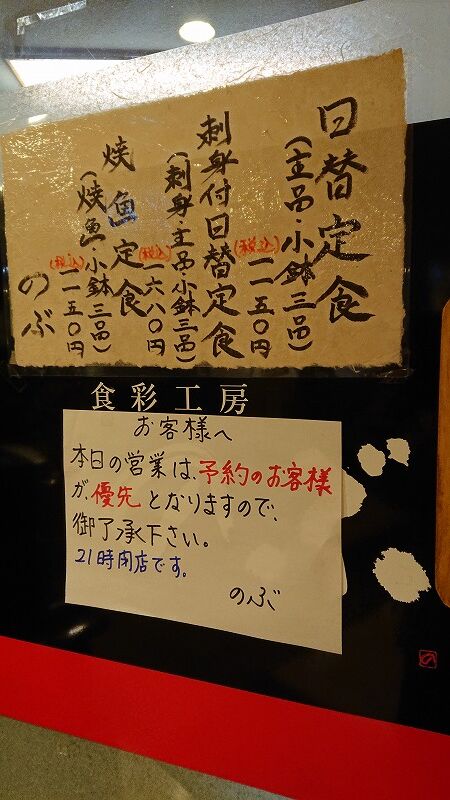 日替定食
（主品・小鉢三品）
（税込）一一五〇円
刺身付日替定食
（刺身・主品・小鉢三品）
（税込）一六八〇円
焼魚定食
（焼魚・小鉢三品）
（税込）一一五〇円
のぶ
食彩工房
お客様へ
本日の営業は、予約のお客様
が、優先となりますので、
御了承下さい。
21時閉店です。
のぶ